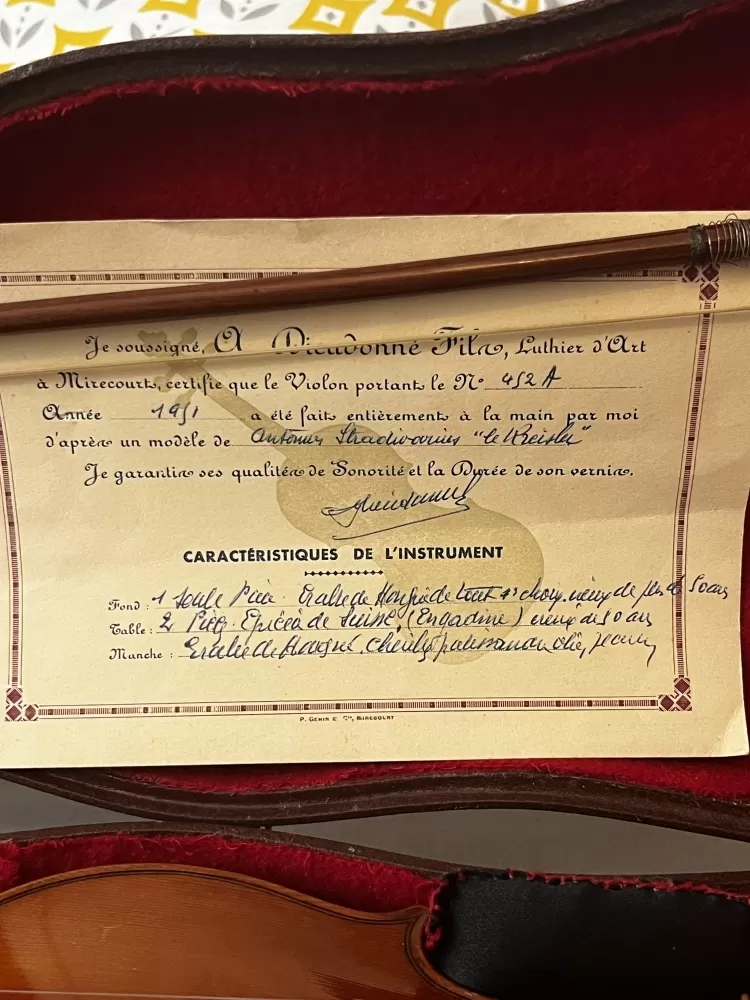 Je soussigné, A Dieudonné Fils, Luthier d'Art
à Mirecourt, certifie que le Violon portant le N° 452 A
Année 1951 a été fait entièrement à la main par moi
d'après un modèle de Antonius Stradivarius "le Kreisler"
Je garantis ses qualités de Sonorité et la Durée de son vernis.
CARACTÉRISTIQUES DE L'INSTRUMENT
Fond : 1 seule Pièce. Erable de Hongrie de tout 1er choix. vieux de plus de 50 ans
Table : 2 Pièces. Epicéa de Suisse (Engadine) vieux de 50 ans
Manche : Erable de Hongrie, Chevilles palissandre
P. GENIN E. Cie, MIRECOURT